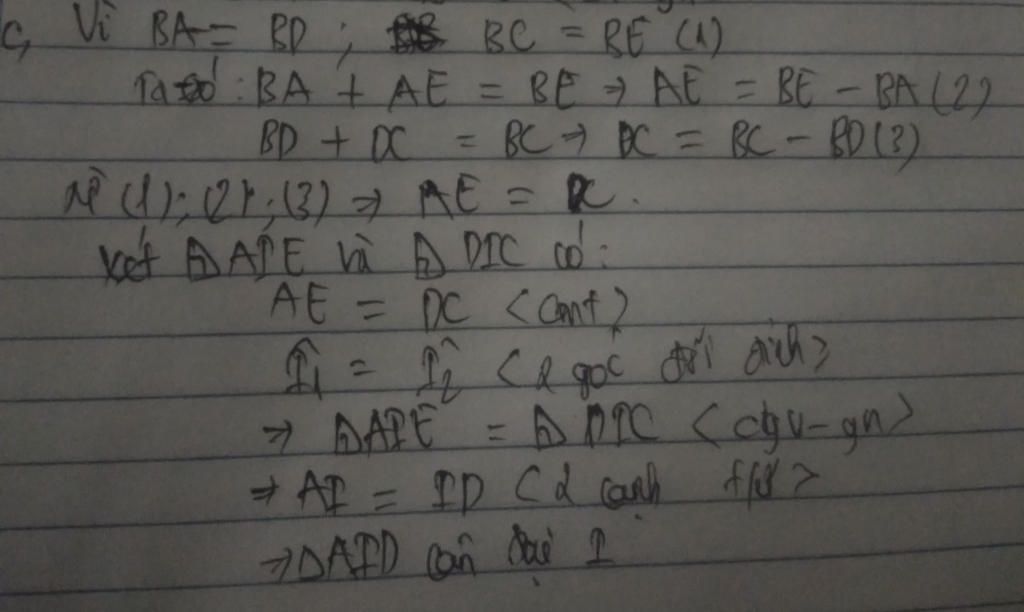 c, Vì BA = BD ; BC = BE (1)
Ta có : BA + AE = BE ⇒ AE = BE - BA (2)
BD + DC = BC ⇒ DC = BC - BD (3)
Từ (1); (2); (3) ⇒ AE = DC.
Xét ΔAIE và ΔDIC có:
AE = DC <cmt>
Î₁ = Î₂ <2 góc đối đỉnh>
⇒ ΔAIE = ΔDIC <cgv-gn>
⇒ AI = ID <2 cạnh t/ứ>
⇒ ΔAID cân tại I